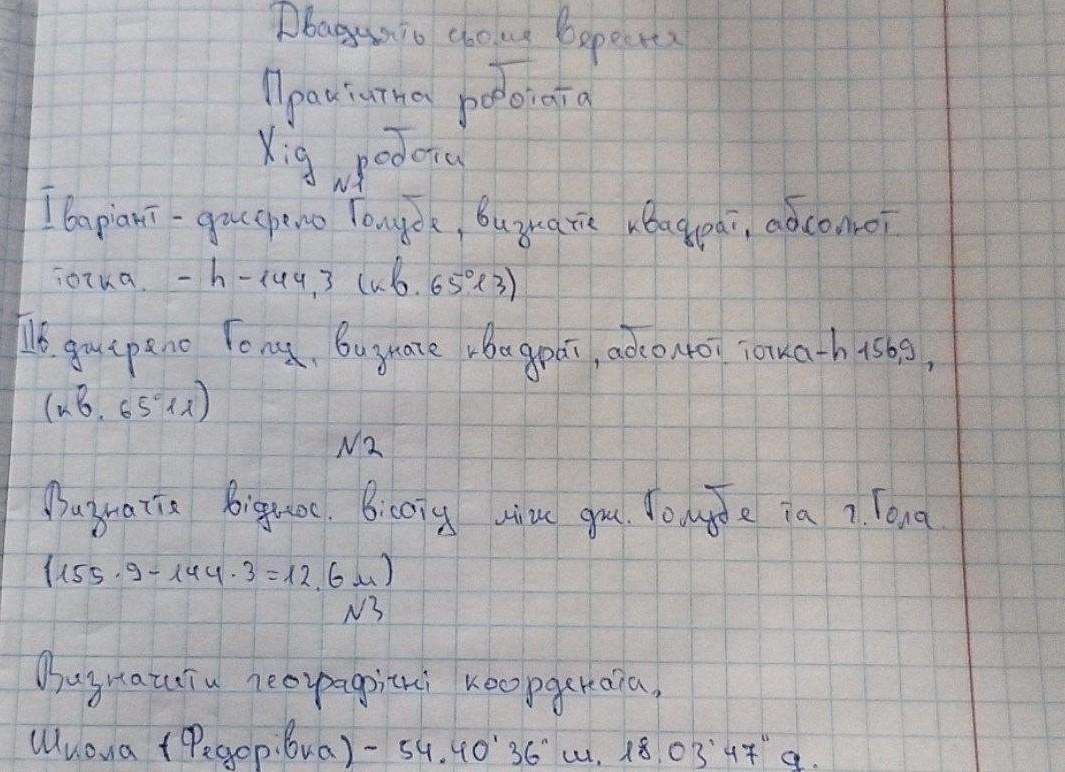 Двадцять сьоме вересня
Практична роботата
Хід роботи
N1
I варіант - джерело Голубе, визнатіе квадрат, абсолют.
точка. - h - 144,3 (кв. 65°13)
IIв. джерело Голу, визнате квадрат, абсолют. точка - h 156,9,
(кв. 65°11)
N2
Визнатіе віднос. вісоту між дж. Голубе та г. Гола
(155.9 - 144.3 = 12.6 м)
N3
Визначити географічні коордената,
Школа (Федорівка) - 54.40'36" ш. 18.03'47" д.